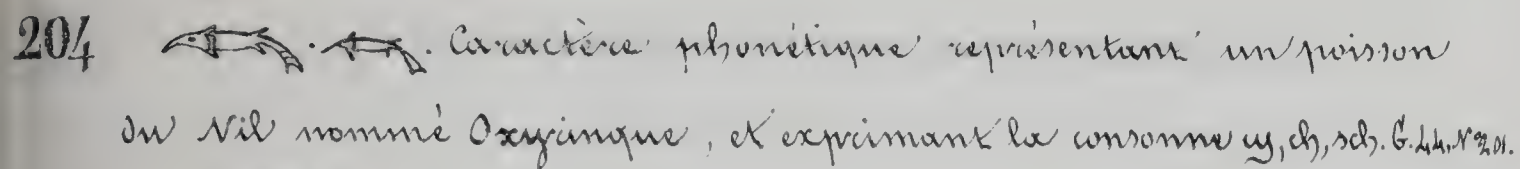 204 . . Caractère phonétique représentant un poisson
du Nil nommé Oxyrinque, et exprimant la consonne ϣ, ch, sch. G. 44. N° 201.